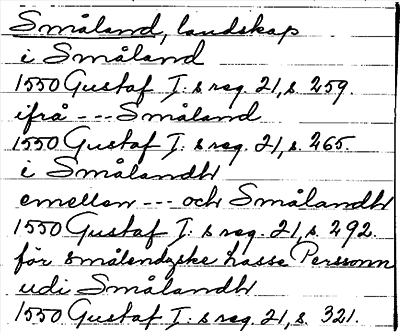 Småland, landskap
i Småland
1550 Gustaf I: s reg. 21, s. 259.
ifrå --- Småland
1550 Gustaf I: s reg. 21, s. 265.
i Smålandh
emellan --- och Smålandh
1550 Gustaf I: s reg. 21, s. 292.
för smålendzske Lasse Personn
udi Smålandh
1550 Gustaf I: s reg. 21, s. 321.